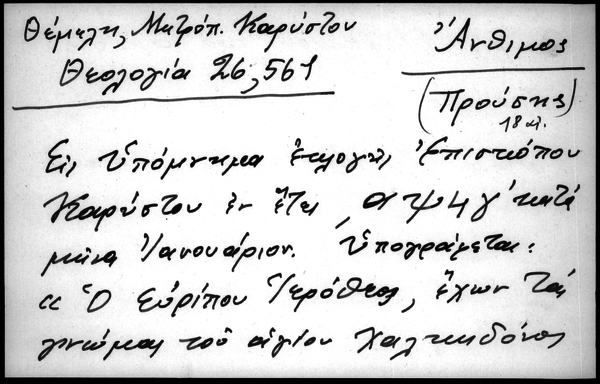 Θέμελη, Μητρόπ. Καρύστου
Θεολογία 26, 561
Ἄνθιμος
(Προύσης)
18 αἰ.
Εἰς Ὑπόμνημα ἐκλογῆς Ἐπισκόπου
Καρύστου ἐν ἔτει ͵αψϟγʹ κατὰ
μῆνα Ἰανουάριον. Ὑπογράφεται:
« Ὁ Εὐρίπου Ἱερόθεος, ἔχων τὰς
γνώμας τοῦ ἁγίου Χαλκηδόνος